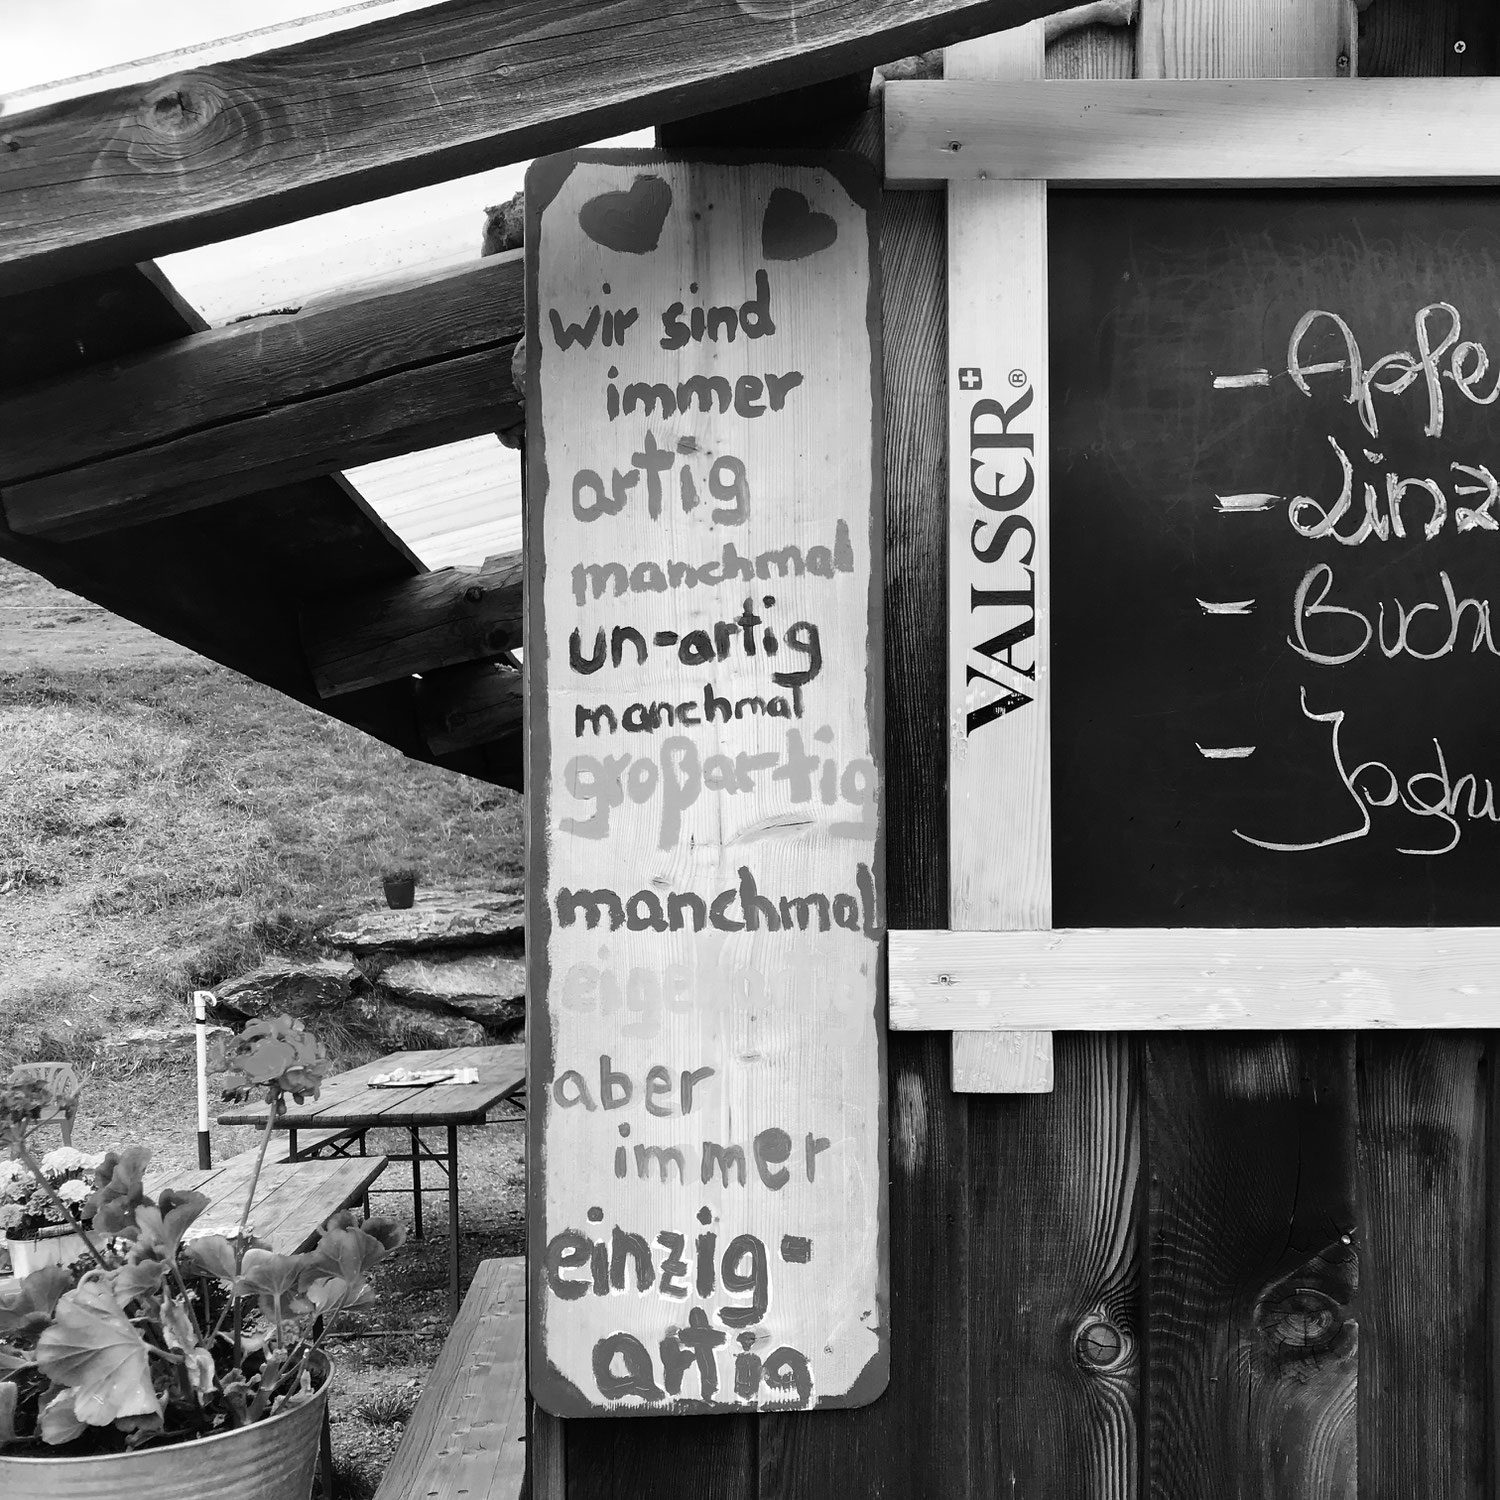 wir sind
immer
artig
manchmal
un-artig
manchmal
großartig
manchmal
eigenartig
aber
immer
einzig-
artig
VALSER®
- Apfe
- Linz
- Buchw
- Joghu